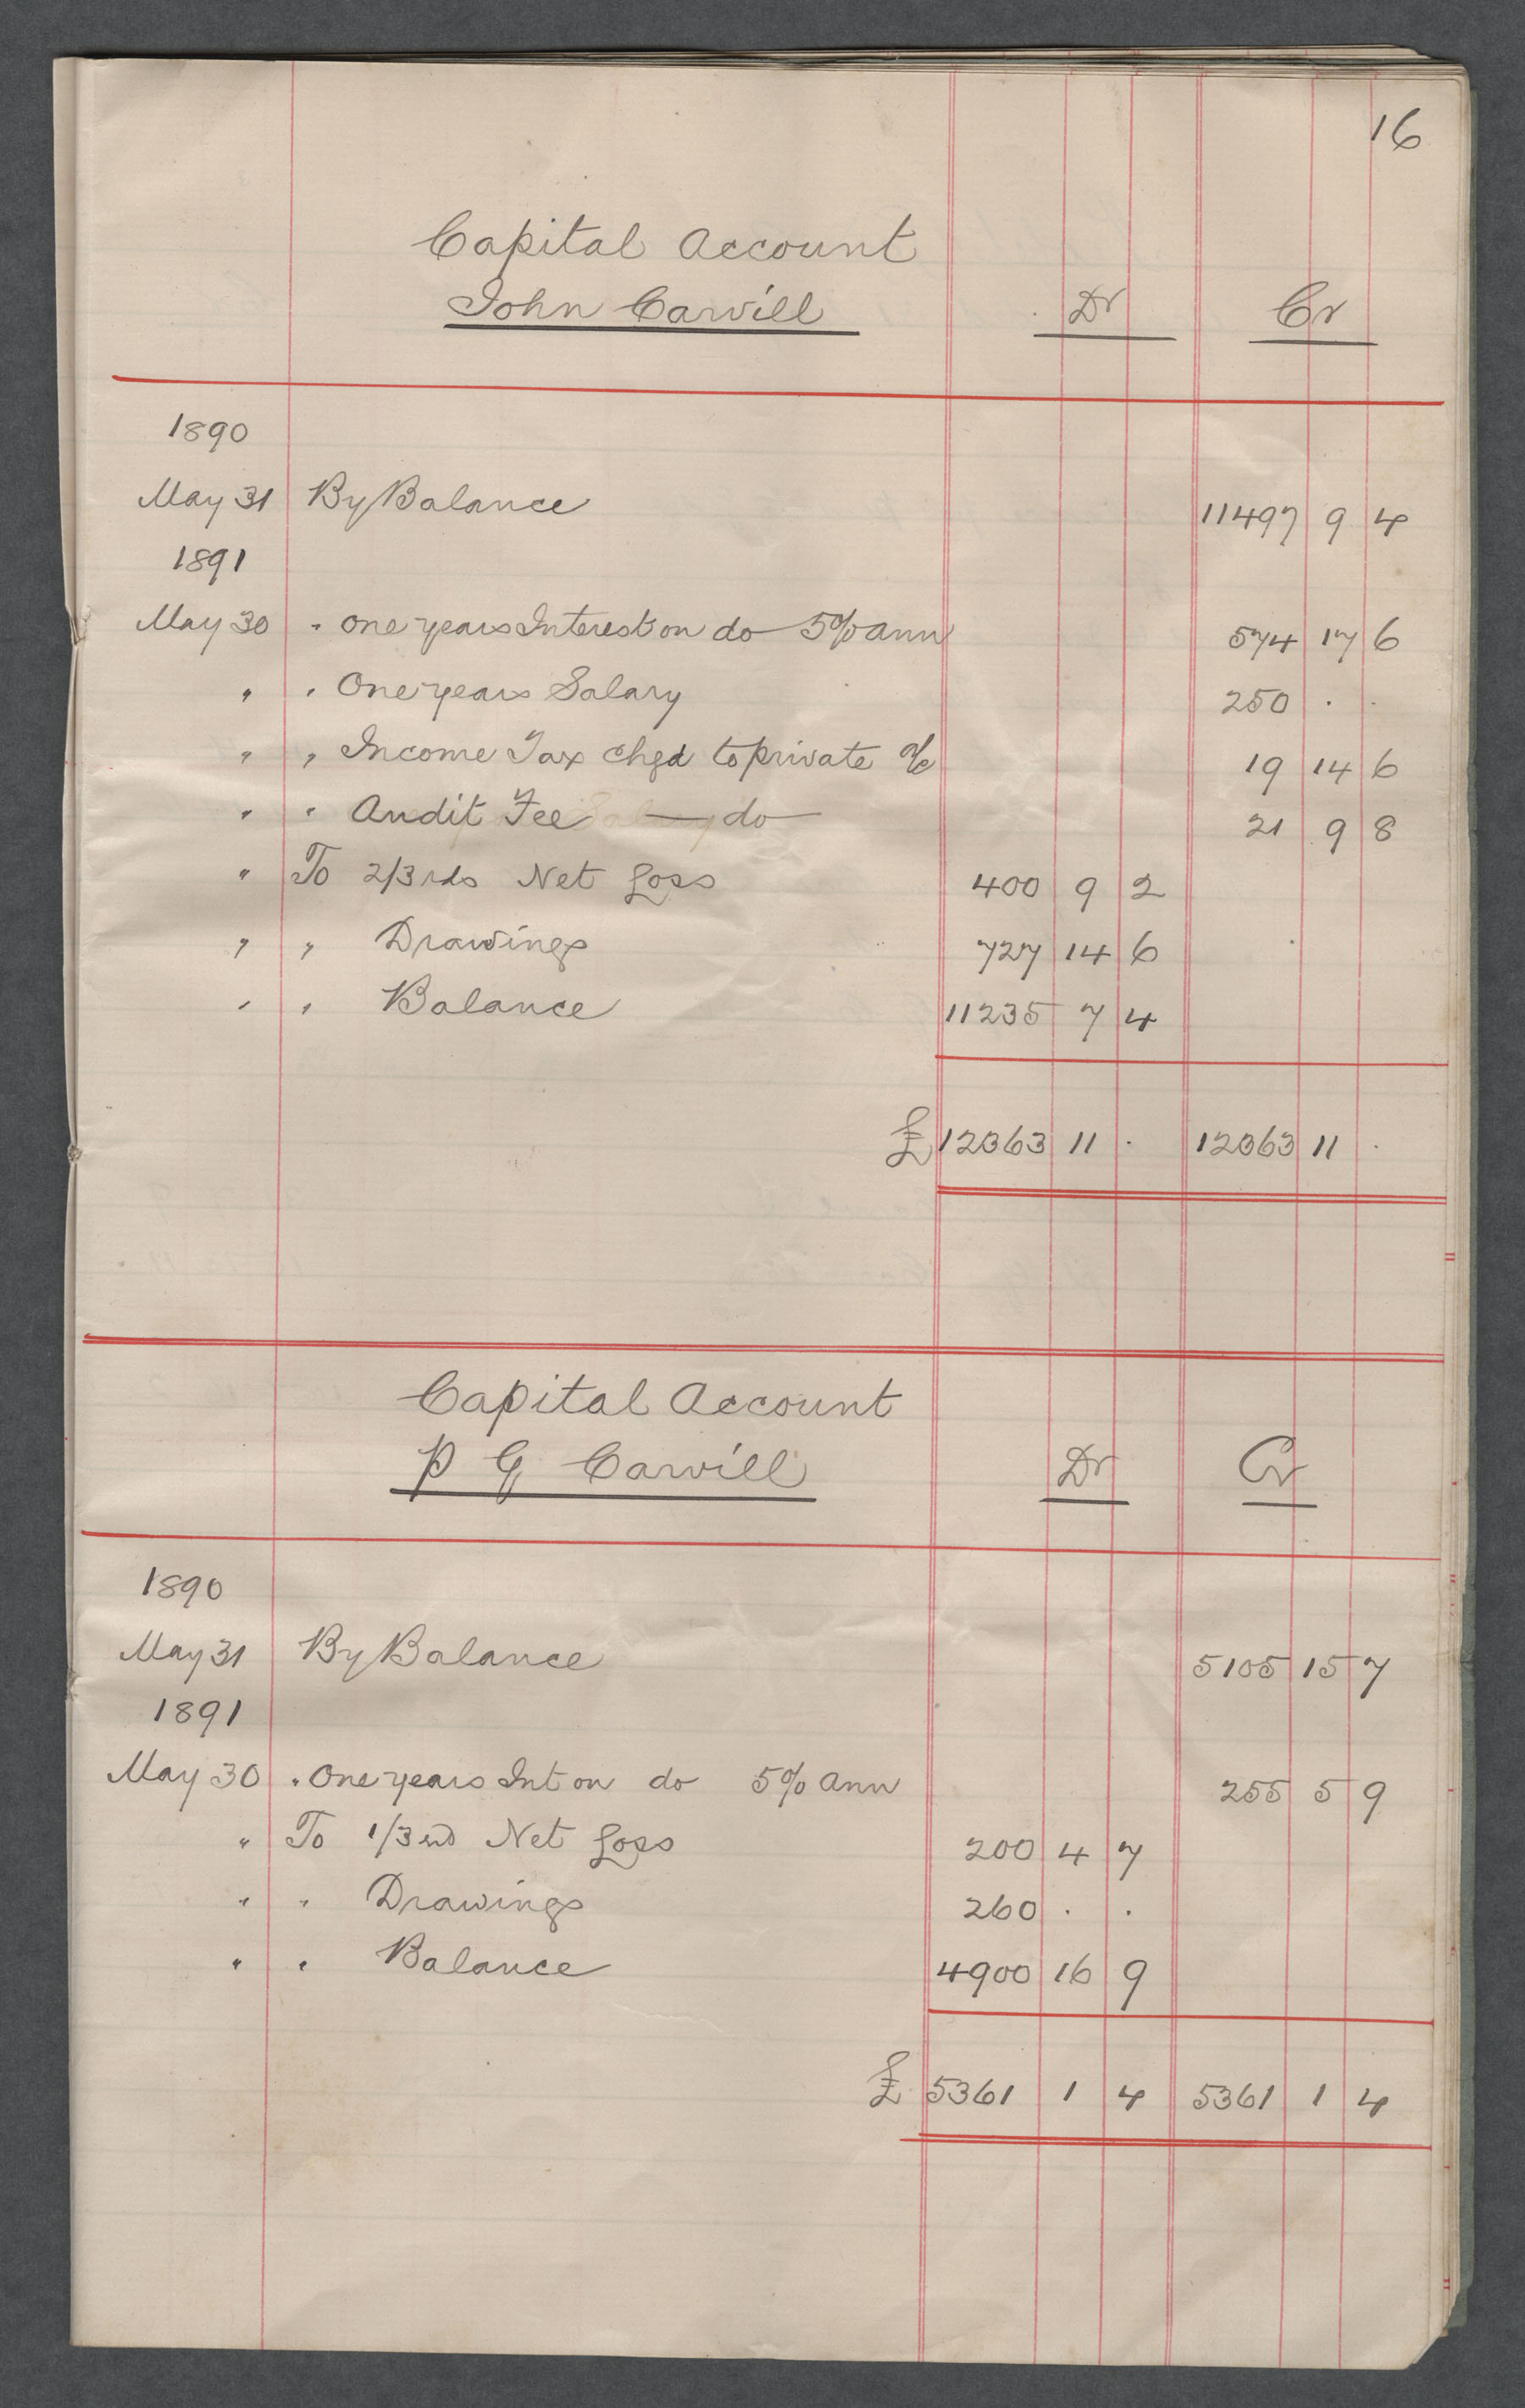 16
Capital Account
John Carvill Dr Cr
1890
May 31 By Balance 11497 9 4
1891
May 30 " One years Interest on do 5% ann 574 17 6
" " One years Salary 250 . .
" " Income Tax chgd to private a/c 19 14 6
" " Audit Fee — do — 21 9 8
" To 2/3rds Net Loss 400 9 2
" " Drawings 727 14 6
" " Balance 11235 7 4
£ 12363 11 . 12363 11 .
Capital Account
P G Carvill Dr Cr
1890
May 31 By Balance 5105 15 7
1891
May 30 " One years Int on do 5% ann 255 5 9
" To 1/3rd Net Loss 200 4 7
" " Drawings 260 . .
" " Balance 4900 16 9
£ 5361 1 4 5361 1 4